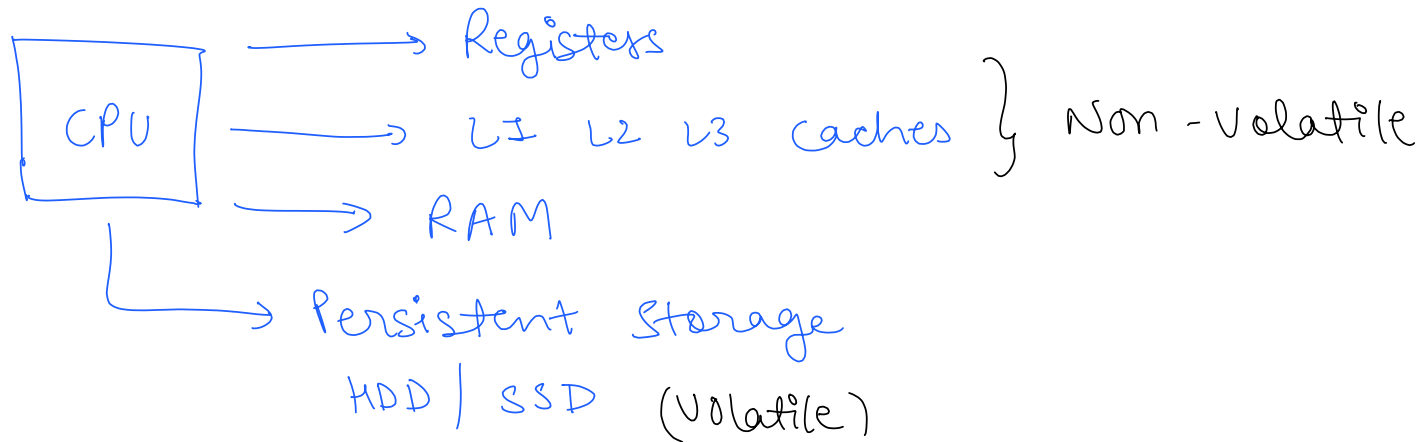 Registers
CPU L1 L2 L3 Caches } Non - Volatile
RAM
Persistent Storage
HDD | SSD (Volatile)